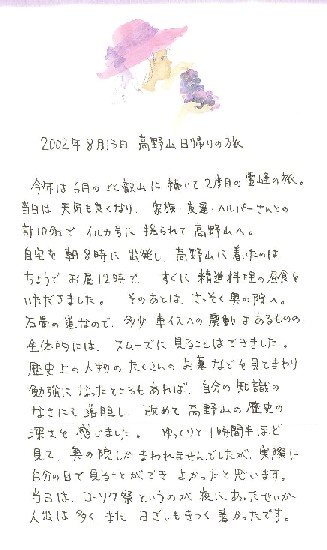 2002年8月13日 高野山日帰りの旅
今年は5月のひえい山に続いて2度目の霊峰の旅。
当日は天気も良くなり、家族・友達・ヘルパーさんとの
計10名で イルカ号に揺られて高野山へ。
自宅を朝8時に出発し、高野山に着いたのは
ちょうどお昼12時で、すぐに精進料理の昼食を
いただきました。 そのあとは、さっそく奥の院へ。
石畳の道なので、多少 車イスへの震動はあるものの
全体的には、スムーズに見ることはできました。
歴史上の人物のたくさんのお墓などを見てまわり
勉強になったところもあれば、自分の知識の
なさにも落胆し、改めて高野山の歴史の
深さを感じました。 ゆっくりと1時間半ほど
見て、奥の院しかまわれませんでしたが、実際に
自分の目で見ることができ よかったと思います。
当日は、ローソク祭というのが夜にあったせいか
人数は多く また 日ざしもきつく暑かったです。